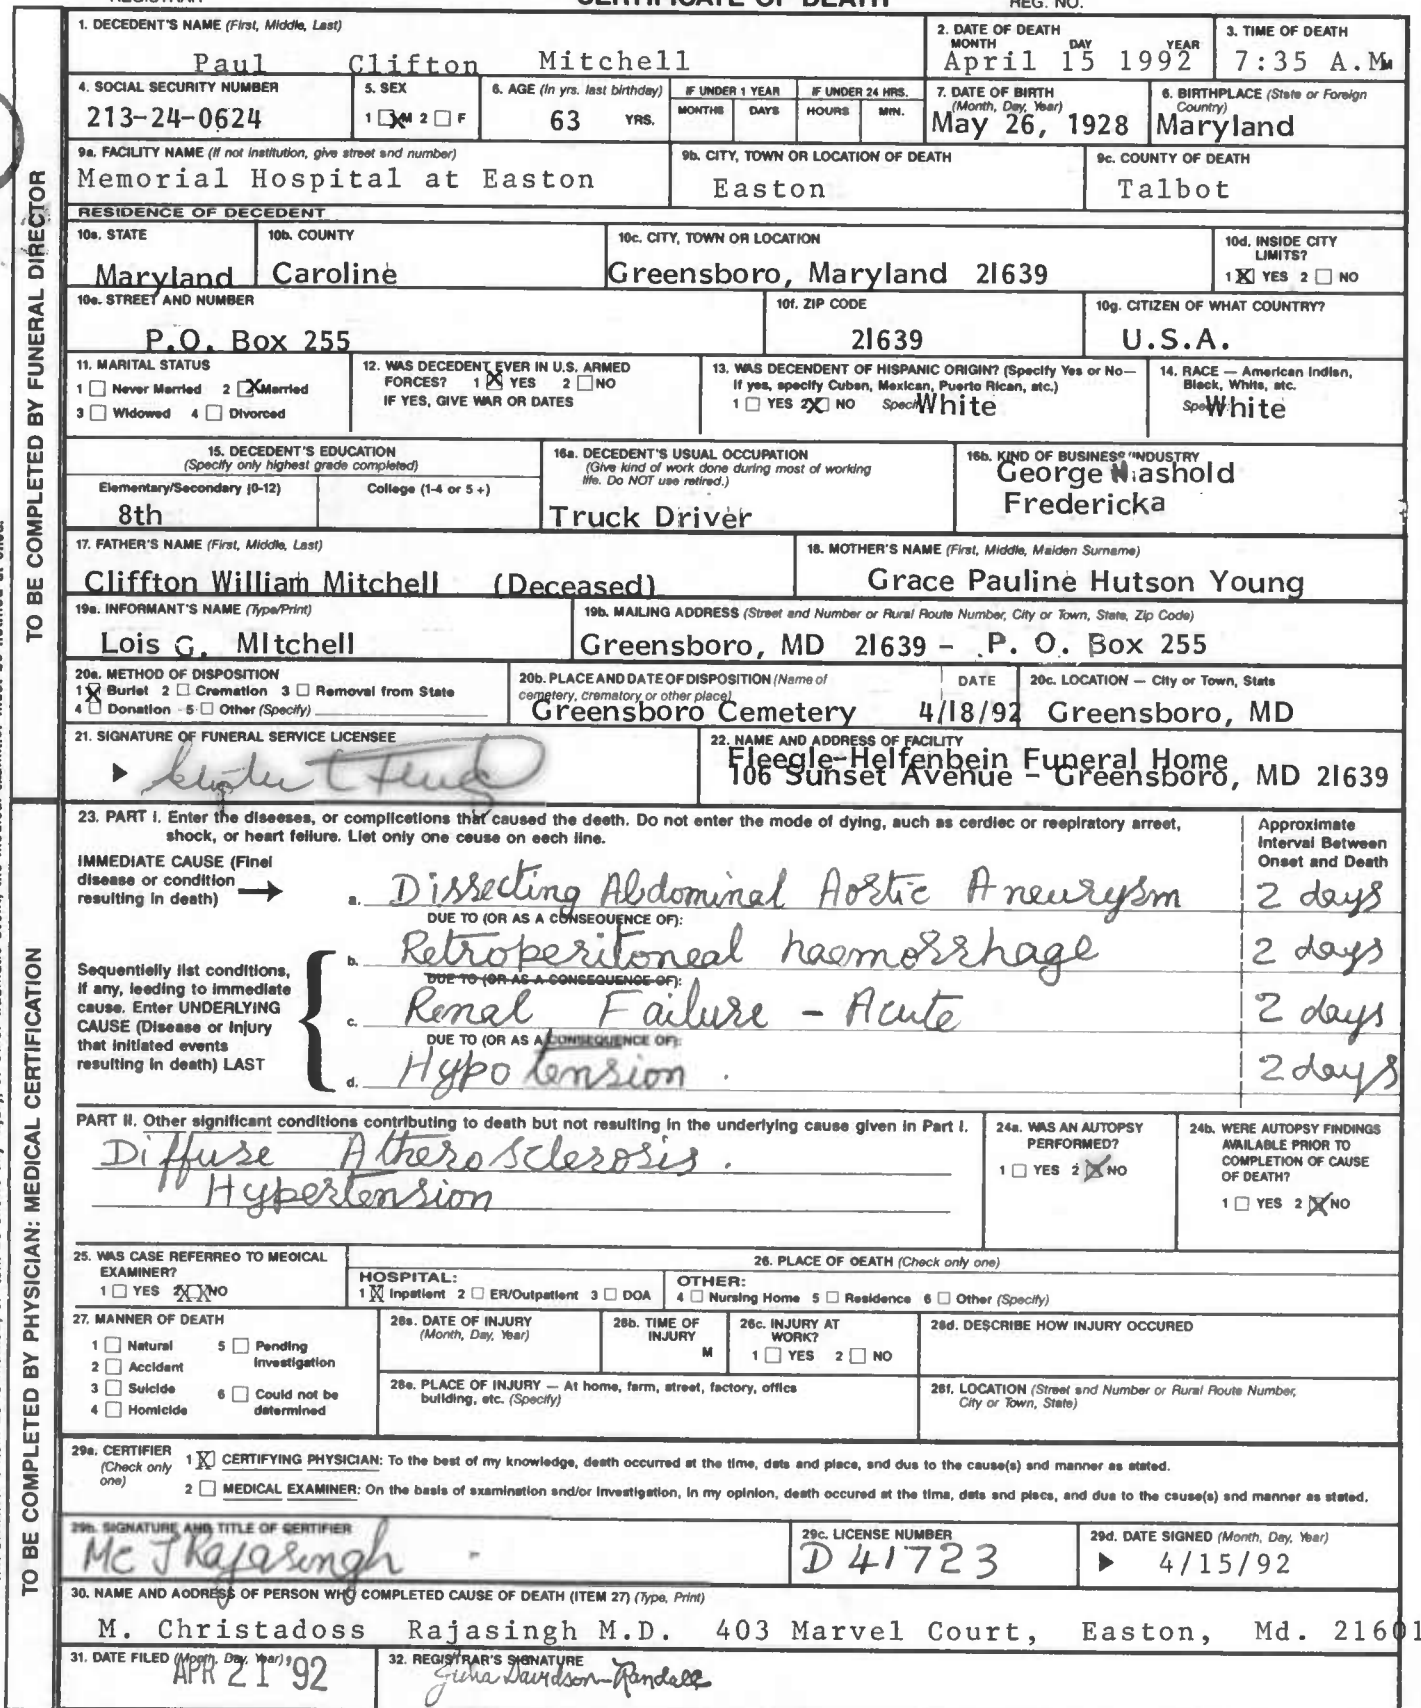 CERTIFICATE OF DEATH
REG. NO.
1. DECEDENT'S NAME (First, Middle, Last)
Paul Clifton Mitchell
2. DATE OF DEATH
MONTH DAY YEAR
April 15 1992
3. TIME OF DEATH
7:35 A.M
4. SOCIAL SECURITY NUMBER
213-24-0624
5. SEX
1 ☒ M 2 ☐ F
6. AGE (In yrs. last birthday)
63 YRS.
IF UNDER 1 YEAR
MONTHS DAYS
IF UNDER 24 HRS.
HOURS MIN.
7. DATE OF BIRTH
(Month, Day, Year)
May 26, 1928
8. BIRTHPLACE (State or Foreign
Country)
Maryland
9a. FACILITY NAME (If not institution, give street and number)
Memorial Hospital at Easton
9b. CITY, TOWN OR LOCATION OF DEATH
Easton
9c. COUNTY OF DEATH
Talbot
TO BE COMPLETED BY FUNERAL DIRECTOR
RESIDENCE OF DECEDENT
10a. STATE
Maryland
10b. COUNTY
Caroline
10c. CITY, TOWN OR LOCATION
Greensboro, Maryland 21639
10d. INSIDE CITY
LIMITS?
1 ☒ YES 2 ☐ NO
10e. STREET AND NUMBER
P.O. Box 255
10f. ZIP CODE
21639
10g. CITIZEN OF WHAT COUNTRY?
U.S.A.
11. MARITAL STATUS
1 ☐ Never Married 2 ☒ Married
3 ☐ Widowed 4 ☐ Divorced
12. WAS DECEDENT EVER IN U.S. ARMED
FORCES? 1 ☒ YES 2 ☐ NO
IF YES, GIVE WAR OR DATES
13. WAS DECENDENT OF HISPANIC ORIGIN? (Specify Yes or No—
If yes, specify Cuban, Mexican, Puerto Rican, etc.)
1 ☐ YES 2 ☒ NO Speci White
14. RACE — American Indian,
Black, White, etc.
Spe White
15. DECEDENT'S EDUCATION
(Specify only highest grade completed)
Elementary/Secondary (0-12) College (1-4 or 5+)
8th
16a. DECEDENT'S USUAL OCCUPATION
(Give kind of work done during most of working
life. Do NOT use retired.)
Truck Driver
16b. KIND OF BUSINESS/INDUSTRY
George
Fredericka
17. FATHER'S NAME (First, Middle, Last)
Cliffton William Mitchell (Deceased)
18. MOTHER'S NAME (First, Middle, Maiden Surname)
Grace Pauline Hutson Young
19a. INFORMANT'S NAME (Type/Print)
Lois G. MItchell
19b. MAILING ADDRESS (Street and Number or Rural Route Number, City or Town, State, Zip Code)
Greensboro, MD 21639 - P. O. Box 255
20a. METHOD OF DISPOSITION
1 ☒ Buriel 2 ☐ Cremation 3 ☐ Removal from State
4 ☐ Donation 5 ☐ Other (Specify)
20b. PLACE AND DATE OF DISPOSITION (Name of
cemetery, crematory or other place)
Greensboro Cemetery
DATE
4/18/92
20c. LOCATION — City or Town, State
Greensboro, MD
21. SIGNATURE OF FUNERAL SERVICE LICENSEE
22. NAME AND ADDRESS OF FACILITY
Fleegle-Helfenbein Funeral Home
106 Sunset Avenue - Greensboro, MD 21639
TO BE COMPLETED BY PHYSICIAN: MEDICAL CERTIFICATION
23. PART I. Enter the diseases, or complications that caused the death. Do not enter the mode of dying, such as cardiac or respiratory arrest,
shock, or heart failure. List only one cause on each line.
Approximate
Interval Between
Onset and Death
IMMEDIATE CAUSE (Final
disease or condition
resulting in death)
a. Dissecting Abdominal Aortic Aneurysm 2 days
DUE TO (OR AS A CONSEQUENCE OF):
b. Retroperitoneal haemorrhage 2 days
DUE TO (OR AS A CONSEQUENCE OF):
Sequentially list conditions,
if any, leading to immediate
cause. Enter UNDERLYING
CAUSE (Disease or injury
that initiated events
resulting in death) LAST
c. Renal Failure - Acute 2 days
DUE TO (OR AS A CONSEQUENCE OF):
d. Hypotension. 2 days
PART II. Other significant conditions contributing to death but not resulting in the underlying cause given in Part I.
Diffuse Atherosclerosis.
Hypertension
24a. WAS AN AUTOPSY
PERFORMED?
1 ☐ YES 2 ☒ NO
24b. WERE AUTOPSY FINDINGS
AVAILABLE PRIOR TO
COMPLETION OF CAUSE
OF DEATH?
1 ☐ YES 2 ☒ NO
25. WAS CASE REFERRED TO MEDICAL
EXAMINER?
1 ☐ YES 2 ☒ NO
26. PLACE OF DEATH (Check only one)
HOSPITAL:
1 ☒ Inpatient 2 ☐ ER/Outpatient 3 ☐ DOA
OTHER:
4 ☐ Nursing Home 5 ☐ Residence 6 ☐ Other (Specify)
27. MANNER OF DEATH
1 ☐ Natural 5 ☐ Pending
Investigation
2 ☐ Accident
3 ☐ Suicide 6 ☐ Could not be
determined
4 ☐ Homicide
28a. DATE OF INJURY
(Month, Day, Year)
28b. TIME OF
INJURY
M
28c. INJURY AT
WORK?
1 ☐ YES 2 ☐ NO
28d. DESCRIBE HOW INJURY OCCURED
28e. PLACE OF INJURY — At home, farm, street, factory, office
building, etc. (Specify)
28f. LOCATION (Street and Number or Rural Route Number,
City or Town, State)
29a. CERTIFIER
(Check only
one)
1 ☒ CERTIFYING PHYSICIAN: To the best of my knowledge, death occurred at the time, date and place, and due to the cause(s) and manner as stated.
2 ☐ MEDICAL EXAMINER: On the basis of examination and/or investigation, in my opinion, death occured at the time, date and place, and due to the cause(s) and manner as stated.
29b. SIGNATURE AND TITLE OF CERTIFIER
MC J Rajasingh
29c. LICENSE NUMBER
D 41723
29d. DATE SIGNED (Month, Day, Year)
4/15/92
30. NAME AND ADDRESS OF PERSON WHO COMPLETED CAUSE OF DEATH (ITEM 27) (Type, Print)
M. Christadoss Rajasingh M.D. 403 Marvel Court, Easton, Md. 21601
31. DATE FILED (Month, Day, Year)
APR 21 '92
32. REGISTRAR'S SIGNATURE
Julia Davidson-Randall